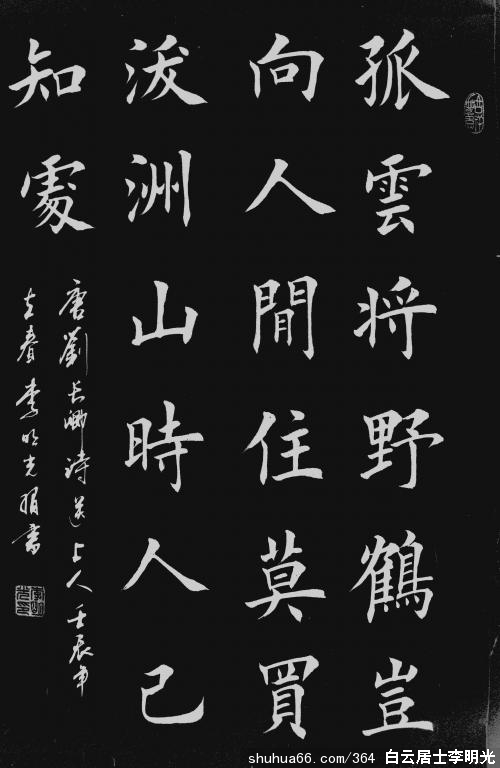 孤雲将野鶴豈
向人間住莫買
沷洲山時人已
知處
唐劉长卿詩送上人壬辰年
立春李明光書
shuhua66.com/364 白云居士李明光